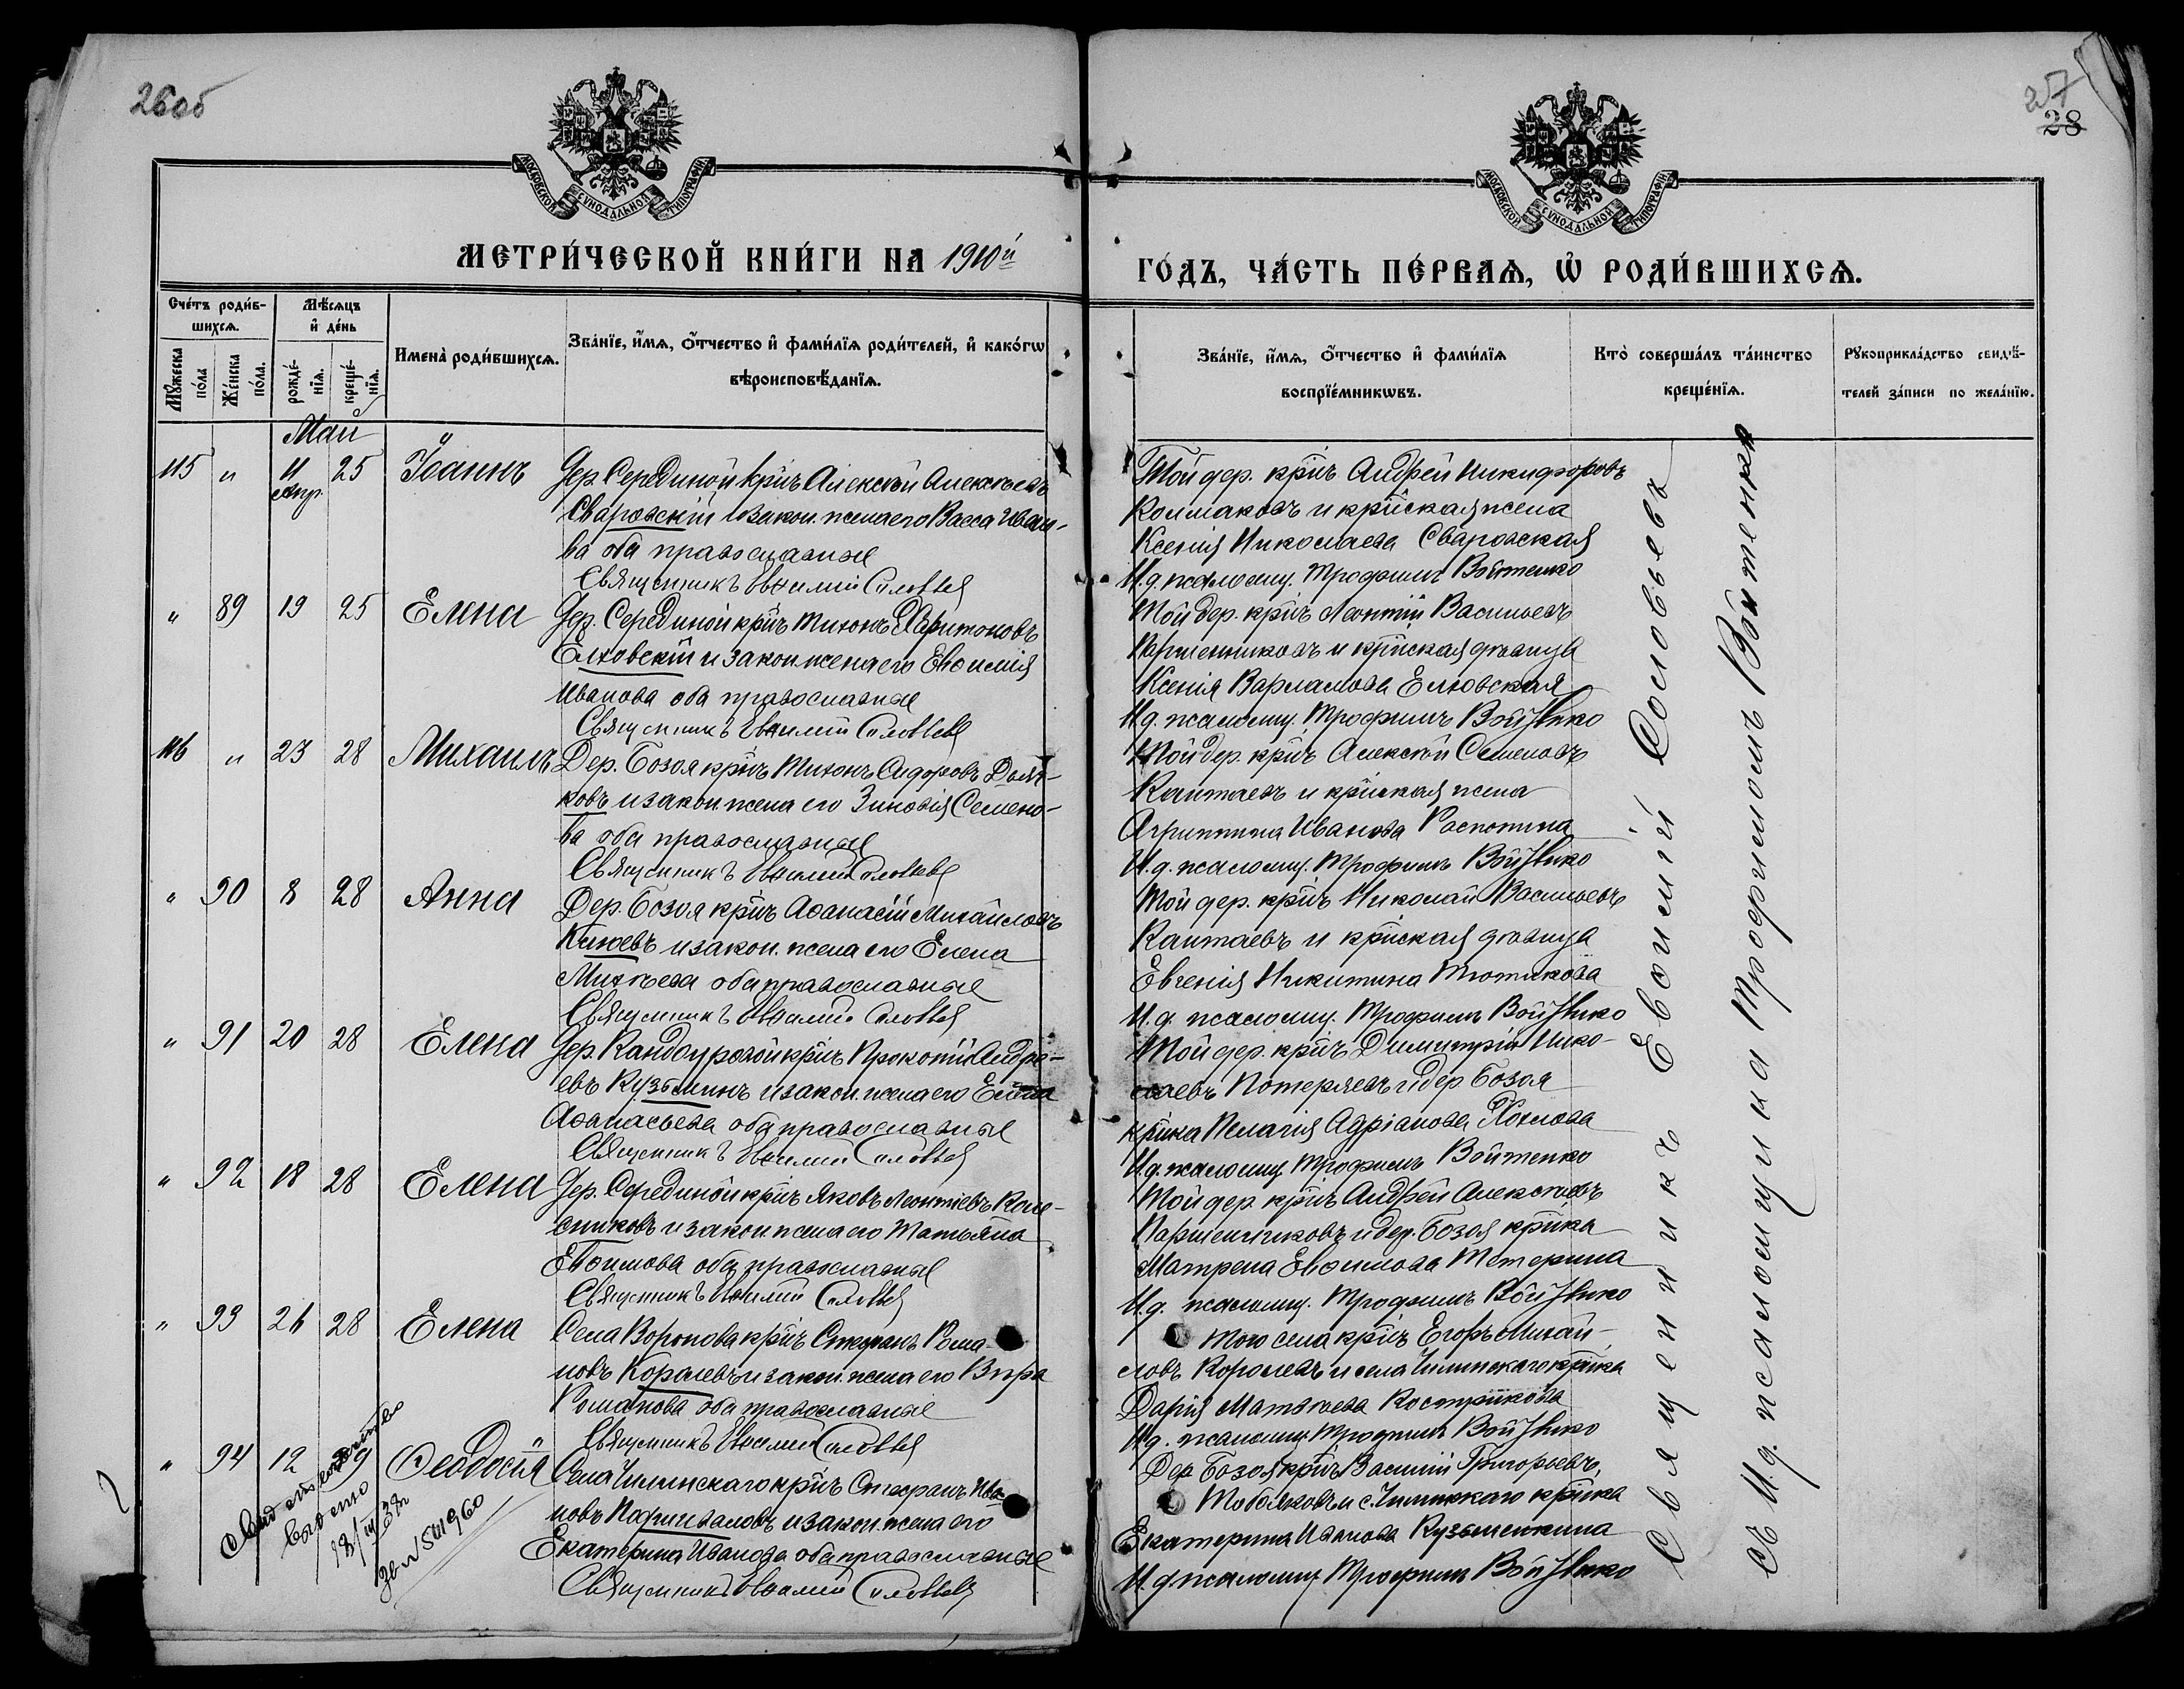 26об
27
28
МОСКОВСКОЙ СѴНОДАЛЬНОЙ ТИПОГРАФІИ
МОСКОВСКОЙ СѴНОДАЛЬНОЙ ТИПОГРАФІИ
МЕТРИ́ЧЕСКОЙ КНИ́ГИ НА 1910й
ГО́ДЪ, ЧА́СТЬ ПЕ́РВАѦ, Ѡ҆ РОДИ́ВШИХСѦ.
Сче́тъ роди́в-
шихсѧ.
Мꙋ́жеска по́ла
Же́нска по́ла.
Мѣ́сѧцъ
и҆ де́нь
рожде́-
нїѧ.
креще́-
нїѧ.
Имена̀ роди́вшихсѧ.
Зва́нїе, и҆́мѧ, ѻ҆́тчество и҆ фами́лїѧ роди́телей, и҆ како́гѡ
вѣроисповѣ́данїѧ.
Зва́нїе, и҆́мѧ, ѻ҆́тчество и҆ фами́лїѧ
воспрїе́мникѡвъ.
Кто̀ соверша́лъ та́инство
креще́нїѧ.
Рꙋкоприкла́дство свидѣ́-
телей за́писи по жела́нїю.
Май
115 " 11 Апр. 25 Іоаннъ
Дер. Серединой кр҃нъ Алексѣй Алексѣевъ
Сваровскій и закон. жена его Васса Ивано-
ва оба православные
Священникъ Евѳимій Соловьевъ
Той дер. кр҃нъ Андрей Никифоровъ
Колмаковъ и кр҃нская жена
Ксенія Николаева Сваровская
И. д. псаломщ. Трофимъ Войтенко
" 89 19 25 Елена
Дер. Серединой кр҃нъ Тихонъ Харитоновъ
Елховскій и закон. жена его Евѳимія
Иванова оба православные
Священникъ Евѳимій Соловьевъ
Той дер. кр҃нъ Леонтій Васильевъ
Паршенниковъ и кр҃нская дѣвица
Ксенія Варламова Елховская
И. д. псаломщ. Трофимъ Войтенко
116 " 23 28 Михаилъ
Дер. Бозоя кр҃нъ Тихонъ Сидоровъ Дьяч-
ковъ и закон. жена его Зиновія Семено-
ва оба православные
Священникъ Евѳимій Соловьевъ
Той дер. кр҃нъ Алексѣй Семеновъ
Каптаевъ и кр҃нская жена
Агриппина Иванова Распопина
И. д. псаломщ. Трофимъ Войтенко
" 90 8 28 Анна
Дер. Бозоя кр҃нъ Аѳанасій Михайловъ
Княжевъ и закон. жена его Елена
Михѣева оба православные
Священникъ Евѳимій Соловьевъ
Той дер. кр҃нъ Николай Васильевъ
Каптаевъ и кр҃нская дѣвица
Евгенія Никитина Тютикова
И. д. псаломщ. Трофимъ Войтенко
" 91 20 28 Елена
Дер. кр҃нъ Прокопій Андре-
евъ Кузьминъ и закон. жена его Елена
Аѳанасьева оба православные
Священникъ Евѳимій Соловьевъ
Той дер. кр҃нъ Димитрій Нико-
лаевъ Потеряевъ и дер. Бозоя
кр҃нка Пелагія Адріанова Хохлова
И. д. псаломщ. Трофимъ Войтенко
" 92 18 28 Елена
Дер. Серединой кр҃нъ Яковъ Леонтіевъ Коле-
сниковъ и закон. жена его Татьяна
Евѳимова оба православные
Священникъ Евѳимій Соловьевъ
Той дер. кр҃нъ Андрей Алексѣевъ
Паршенниковъ и дер. Бозоя кр҃нка
Матрена Евѳимова Тетерина
И. д. псаломщ. Трофимъ Войтенко
" 93 26 28 Елена
Села Воропова кр҃нъ Стефанъ Рома-
новъ Королевъ и закон. жена его Вѣра
Романова оба православные
Священникъ Евѳимій Соловьевъ
Того села кр҃нъ Егоръ Михай-
ловъ Королевъ и села Чилинскаго кр҃нка
Дарія Матвѣева Кострикова
И. д. псаломщ. Трофимъ Войтенко
" 94 12 29 Ѳеодосія
Села Чилинскаго кр҃нъ Стефанъ Ива-
новъ и закон. жена его
Екатерина Иванова оба православные
Священникъ Евѳимій Соловьевъ
Дер. Бозоя кр҃нъ Василій Григорьевъ
Тобояковъ и с. Чилинскаго кр҃нка
Екатерина Иванова Кузьменкина
И. д. псаломщ. Трофимъ Войтенко
Свидетельство
выдано
Священникъ Евѳимій Соловьевъ
Съ И. д. псаломщика Трофимомъ Войтенко